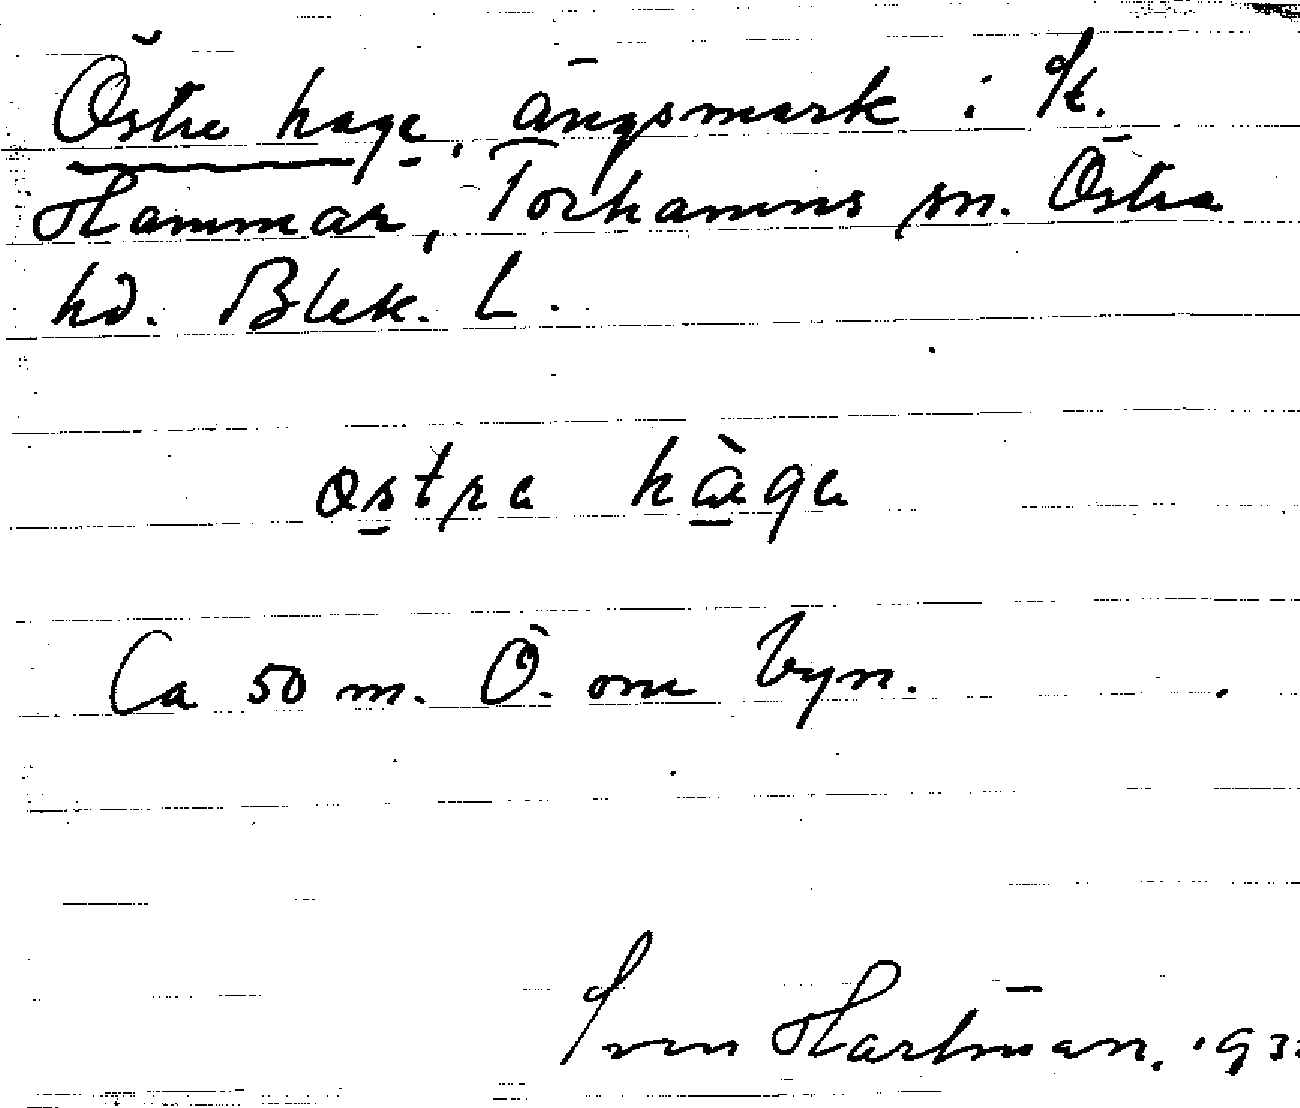 Östre hage, ängsmark i St.
Hammar, Torhamns sn. Östra
hd. Blek. L.
östra hàga
Ca 50 m. Ö. om byn.
Sven Hartman. 193